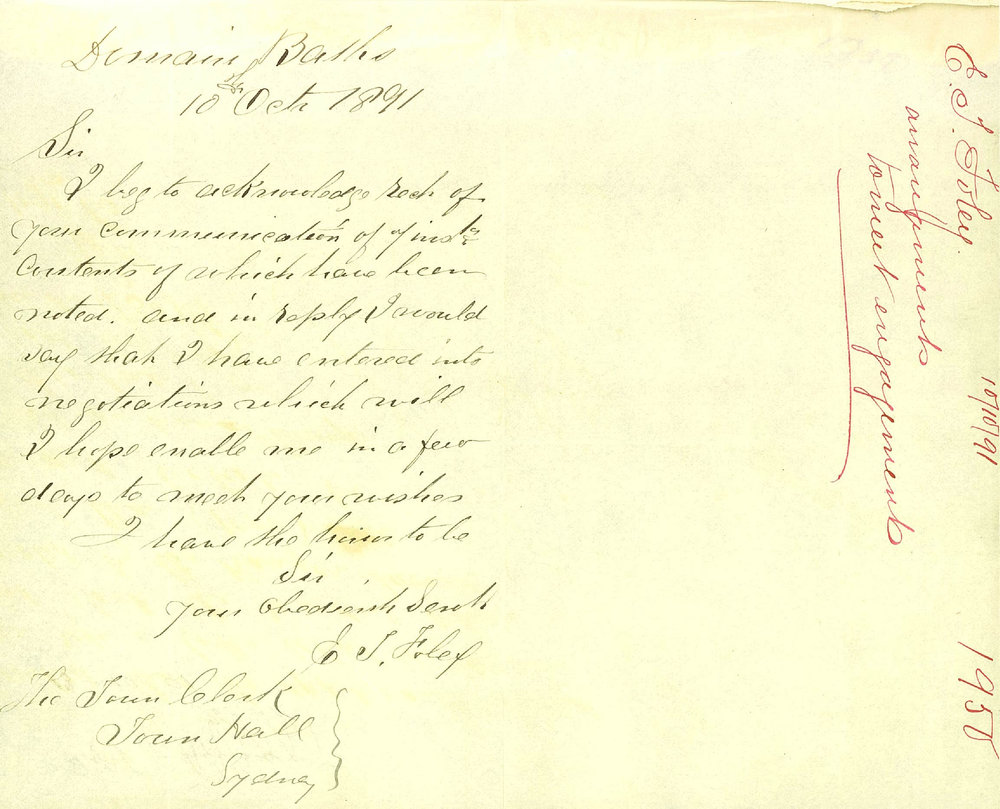 Domain Baths
10th Oct 1891
Sir
I beg to acknowledge rech of
your Communication of 7 inst
Contents of which have been
noted. and in reply I would
say that I have entered into
negotiations which will
I hope enable me in a few
days to meet your wishes
I have the honor to be
Sir
Your Obedient Servt
E T. Foley
The Town Clerk
Town Hall
Sydney
E. T. Foley.
arrangements
to meet engagements
10/10/91
1950